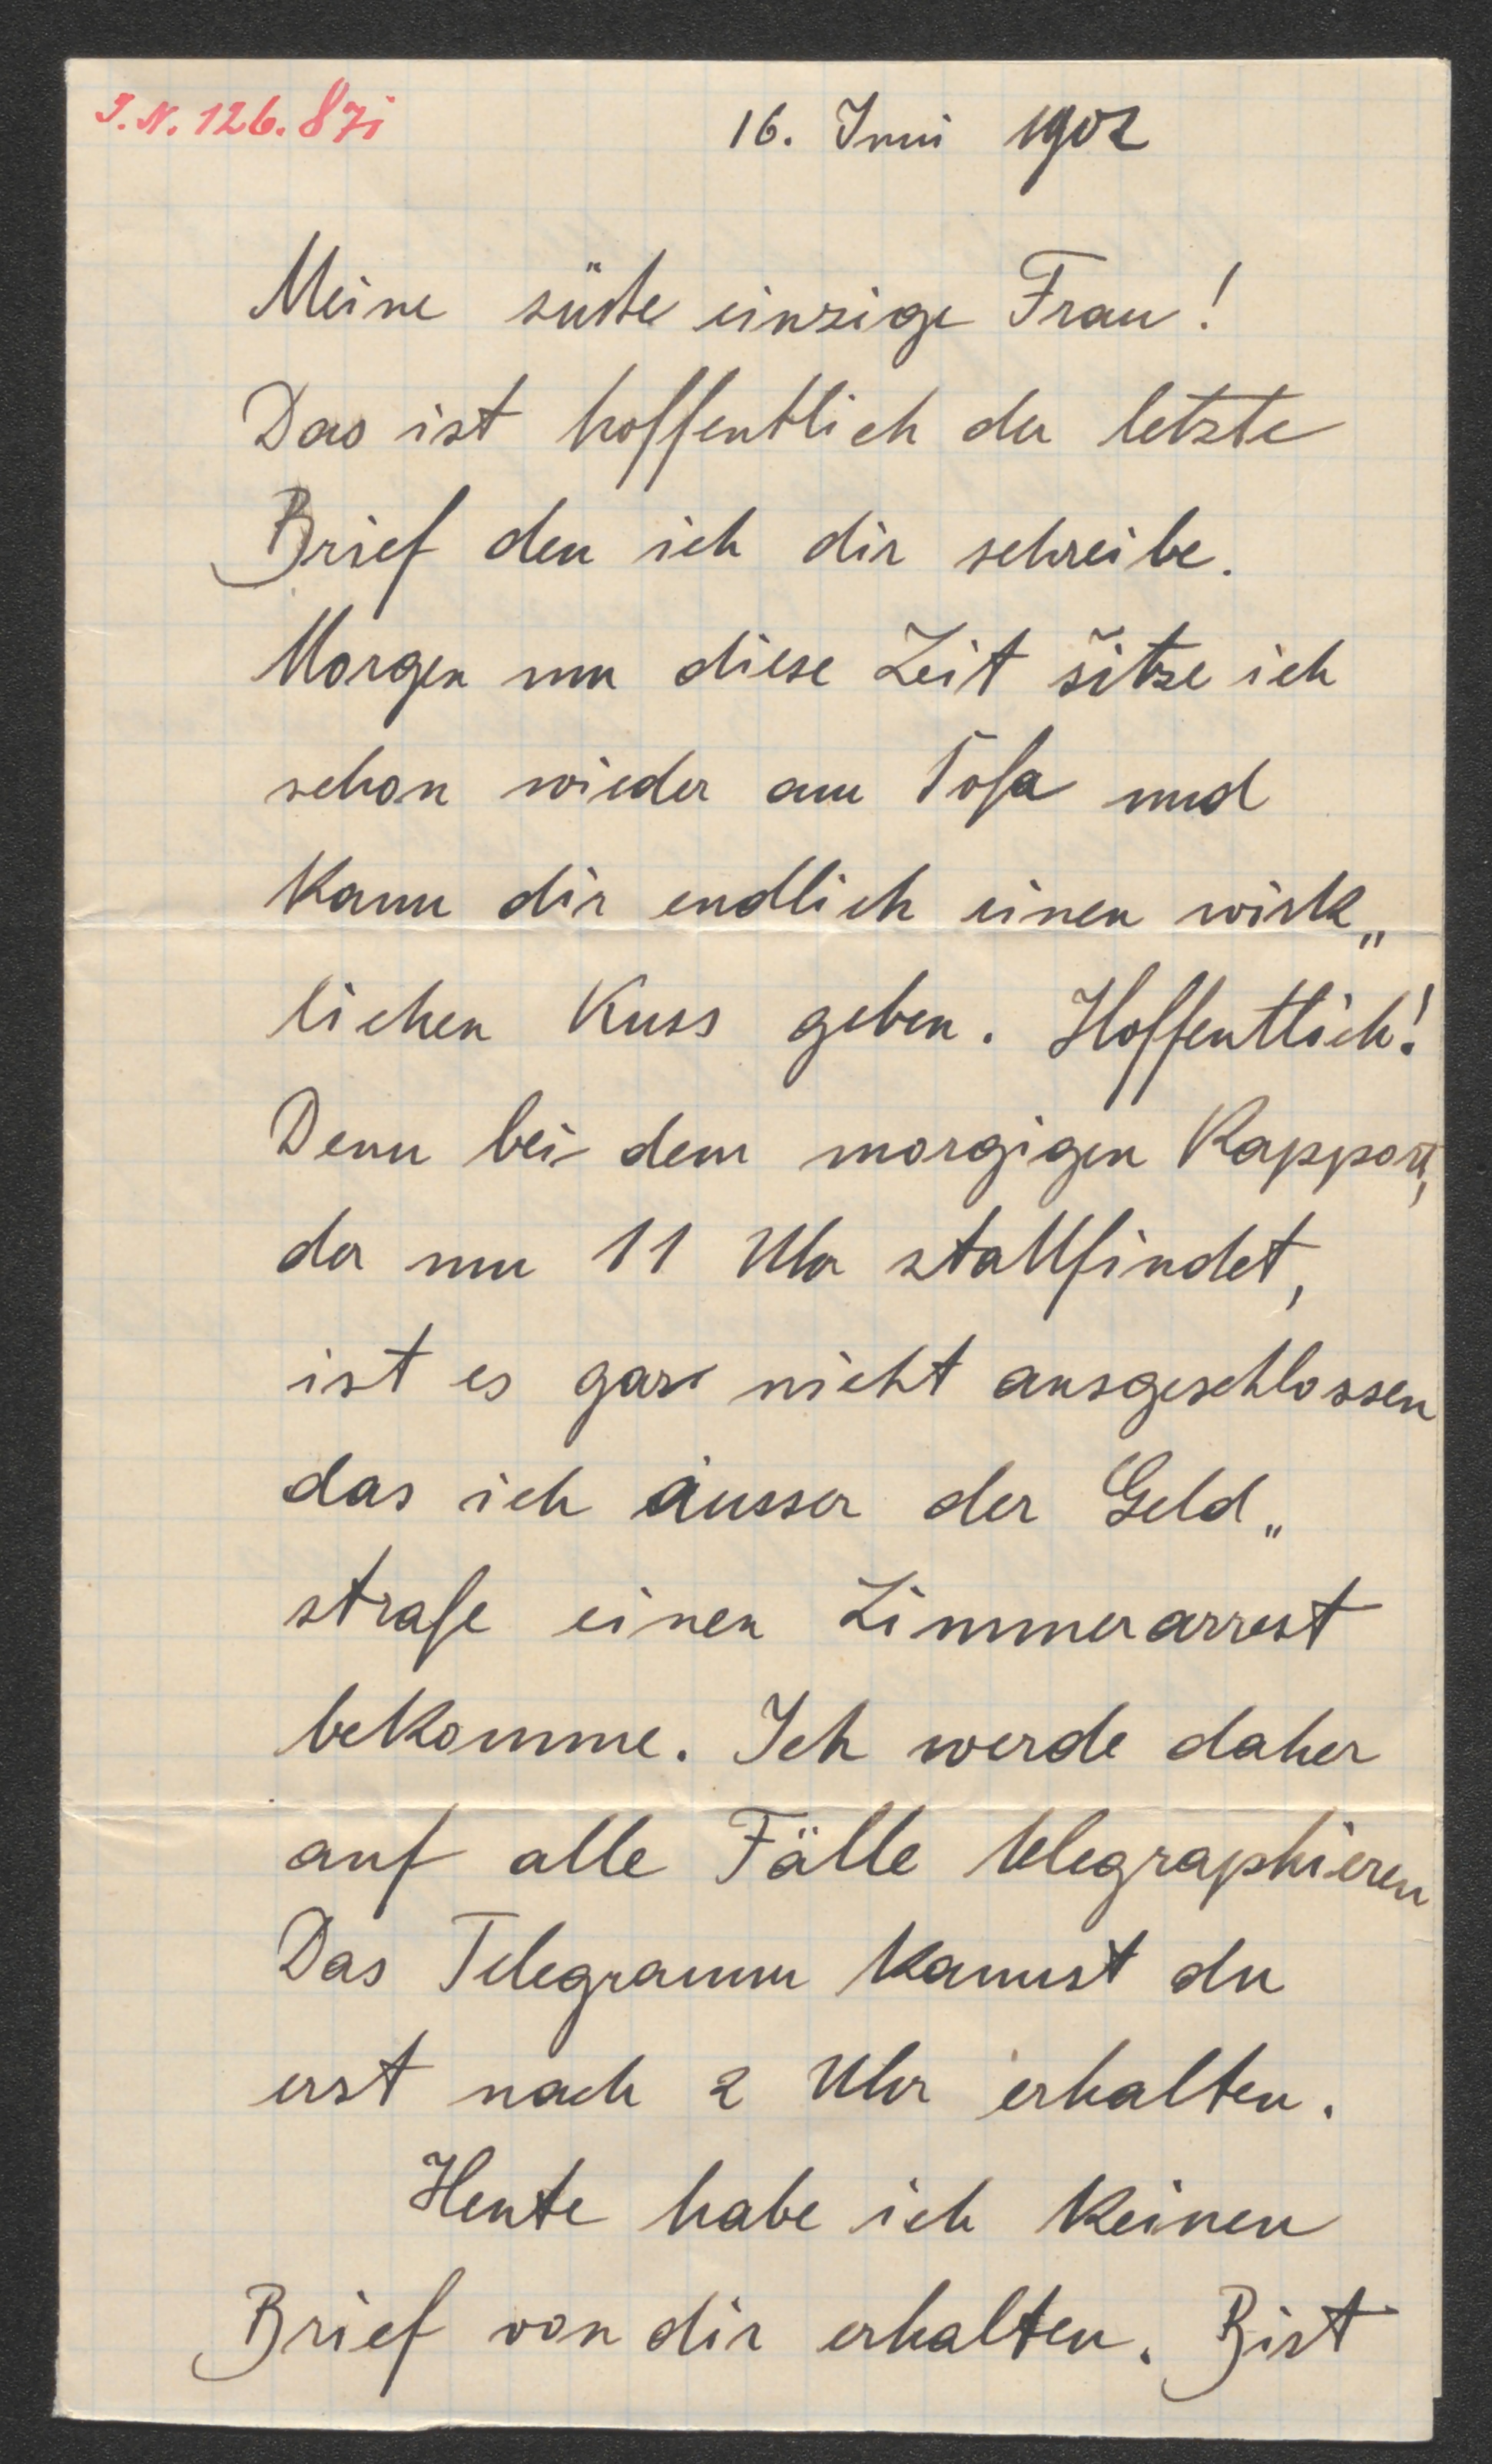 I.N. 126.871
16. Juni 1902
Meine süße einzige Frau!
Das ist hoffentlich der letzte
Brief den ich dir schreibe.
Morgen um diese Zeit sitze ich
schon wieder am Sofa und
kann dir endlich einen wirk„
lichen Kuss geben. Hoffentlich!
Denn bei dem morgigen Rapport,
der um 11 Uhr stattfindet,
ist es gar nicht ausgeschlossen
das ich ausser der Geld„
strafe einen Zimmerarrest
bekomme. Ich werde daher
auf alle Fälle telegraphieren
Das Telegramm kannst du
erst nach 2 Uhr erhalten.
Heute habe ich keinen
Brief von dir erhalten. Bist